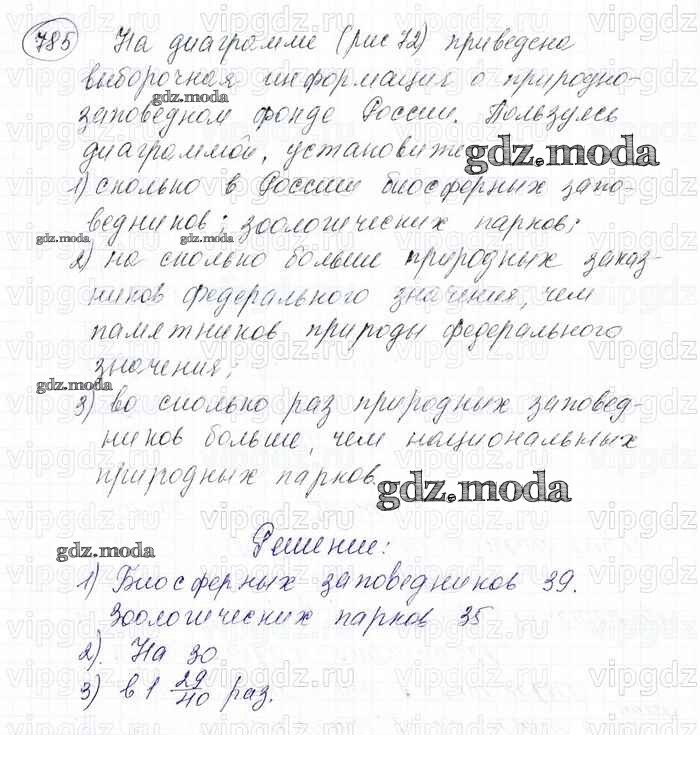 785 На диаграмме (рис 72) приведена
выборочная информация о природно-
gdz.moda
заповедном фонде России. Пользуясь
диаграммой, установите
gdz.moda
1) сколько в России биосферных запо-
ведников; зоологических парков;
gdz.moda gdz.moda
2) на сколько больше природных заказ-
ников федерального значения, чем
памятников природы федерального
значения;
gdz.moda
3) во сколько раз природных заповед-
ников больше, чем национальных
природных парков.
gdz.moda
Решение:
gdz.moda
1) Биосферных заповедников 39.
Зоологических парков 35
2). На 30
3) в 1 29/40 раз.